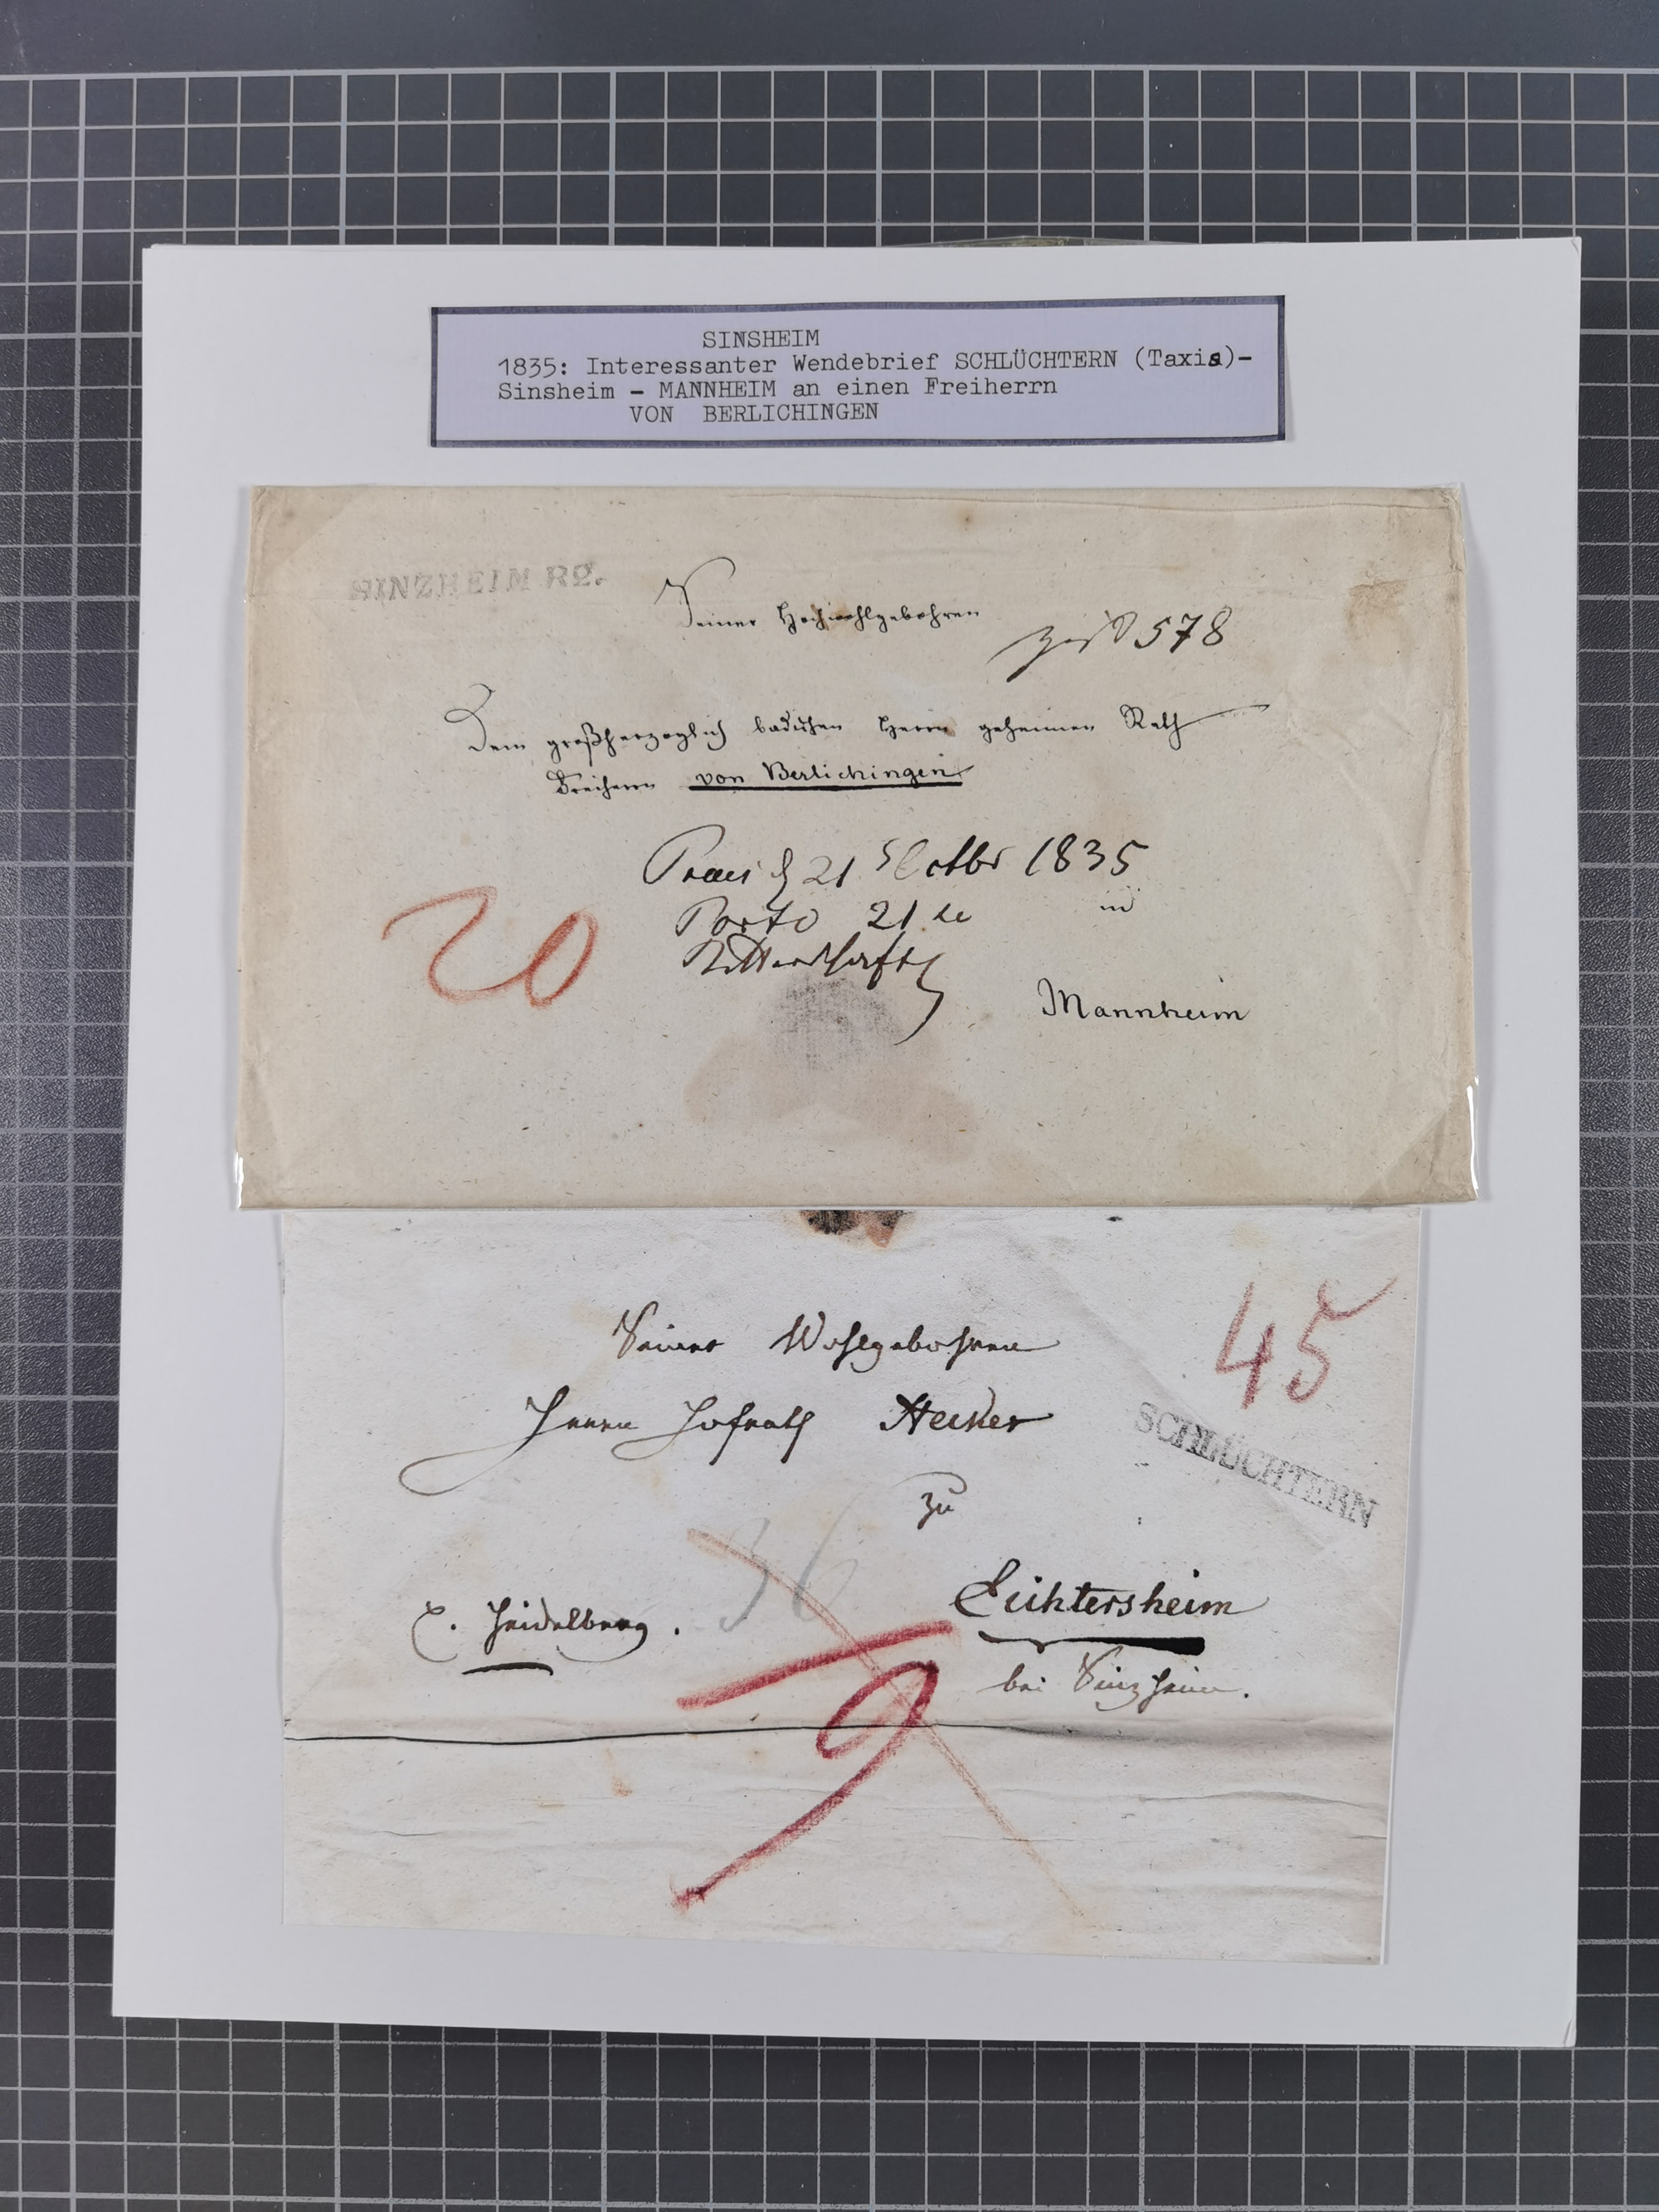 SINSHEIM
1835: Interessanter Wendebrief SCHLÜCHTERN (Taxis)-
Sinsheim - MANNHEIM an einen Freiherrn
VON BERLICHINGEN
SINZHEIM R2.
Seiner Hochwohlgebohren
578
Dem großherzoglich badischen Herrn geheimen Rath
Freiherrn von Berlichingen
21 Octbr 1835
Porto 21
in
20
Mannheim
45
Seiner Wohlgebohren
Herrn Hofrath Hecker
SCHLÜCHTERN
zu
36
Eichtersheim
Heidelberg.
bei Sinzheim.
9